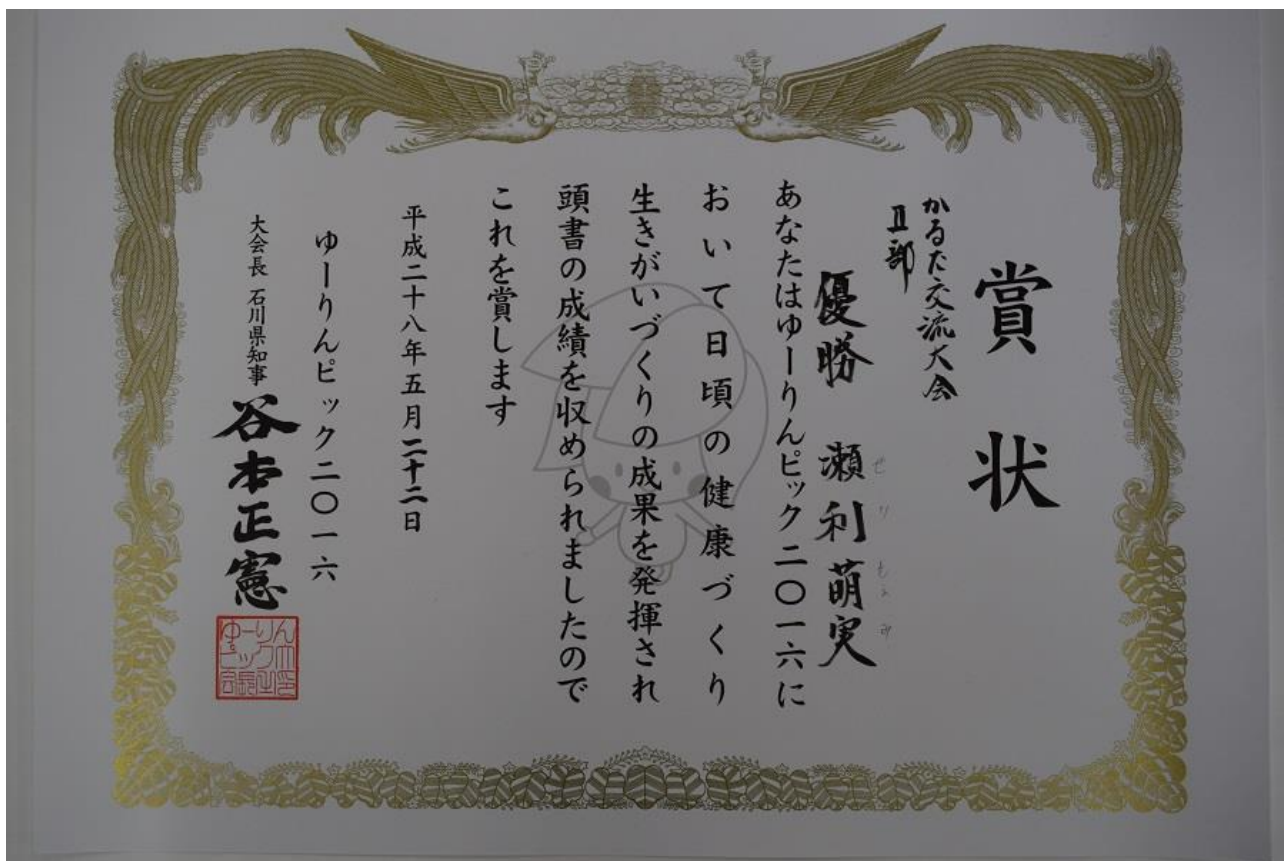 賞状
かるた交流大会
Ⅱ部
優勝 瀬利萌実
せり
あなたはゆーりんピック二〇一六に
おいて日頃の健康づくり
生きがいづくりの成果を発揮され
頭書の成績を収められましたので
これを賞します
平成二十八年五月二十二日
ゆーりんピック二〇一六
大会長 石川県知事 谷本正憲